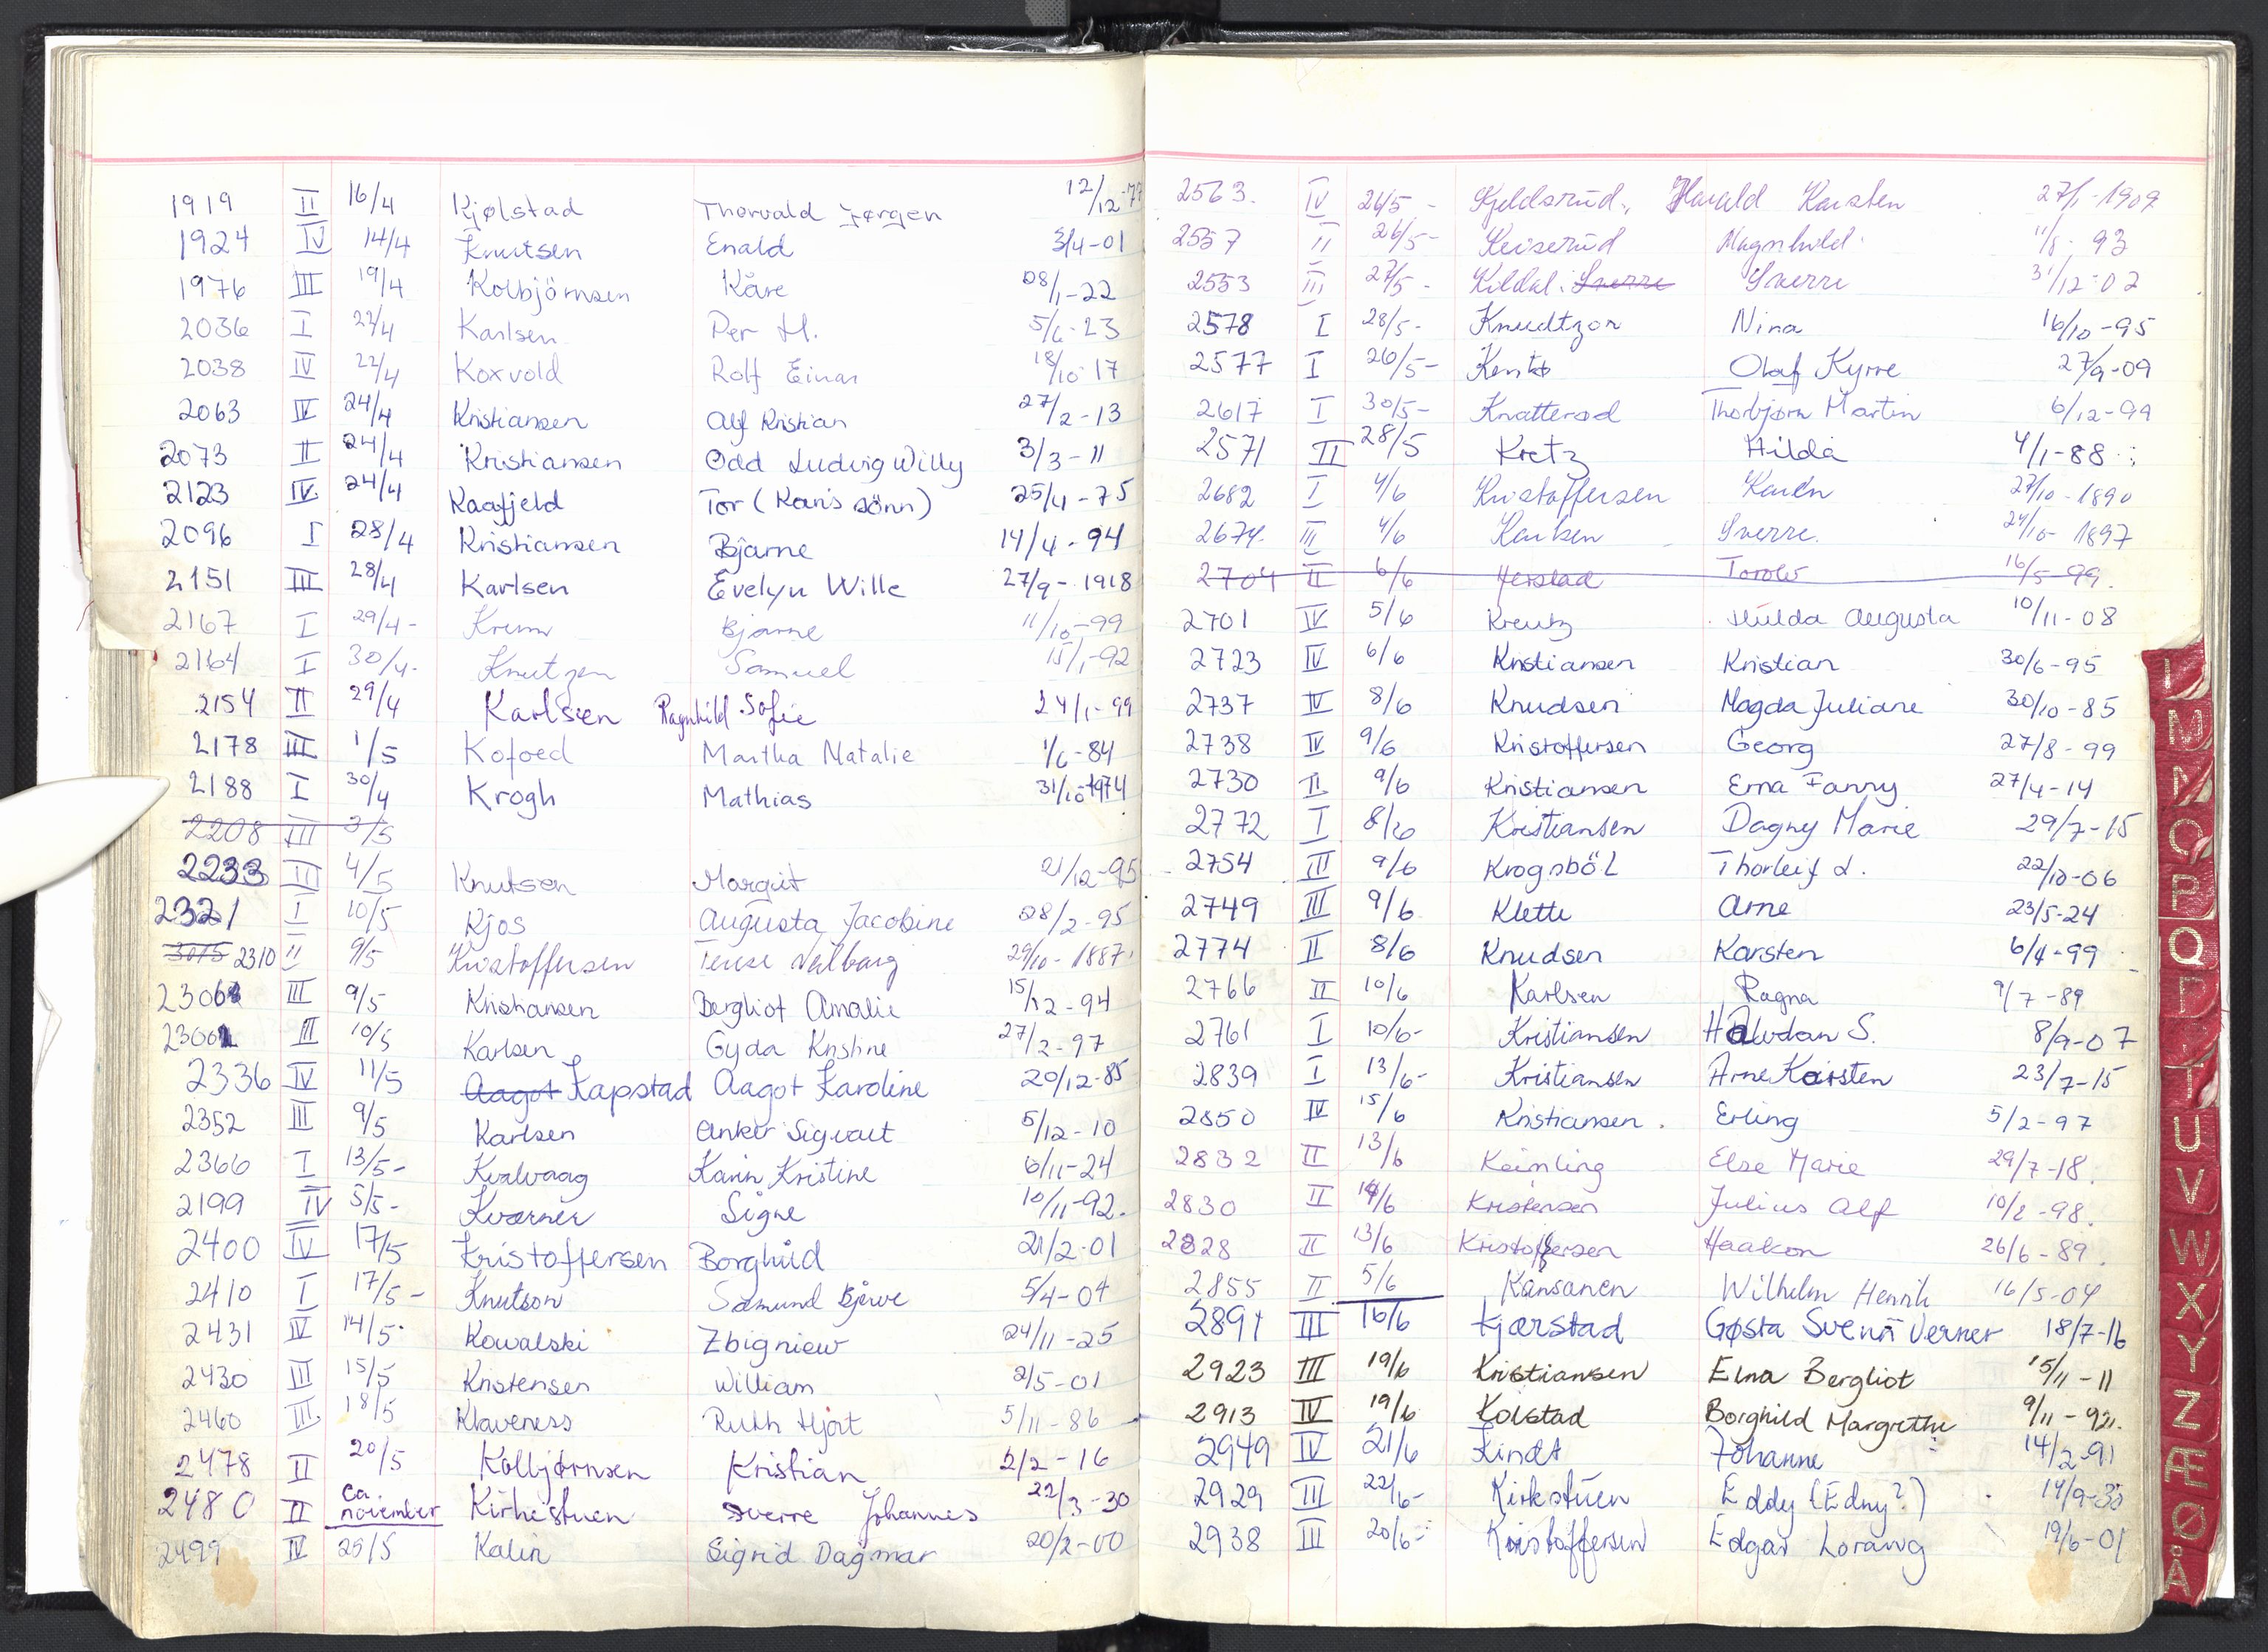 1919 II 16/4 Kjølstad Thorvald Jørgen 12/12-77
1924 IV 14/4 Knutsen Enald 3/4-01
1976 III 19/4 Kolbjörnsen Kåre 28/1-22
2036 I 22/4 Karlsen Per H. 5/6-23
2038 IV 22/4 Koxvold Rolf Einar 18/10-17
2063 IV 24/4 Kristiansen Alf Kristian 27/2-13
2073 II 24/4 Kristiansen Odd Ludvig Willy 3/3-11
2123 IV 24/4 Kaafjeld Tor (Kari's sönn) 25/4-75
2096 I 28/4 Kristiansen Bjarne 14/4-94
2151 III 28/4 Karlsen Evelyn Wille 27/9-1918
2167 I 29/4- Krum Bjarne 11/10-99
2164 I 30/4- Knutzen Samuel 15/1-92
2154 II 29/4 Karlsen Ragnhild Sofie 24/1-99
2178 III 1/5 Kofoed Martha Natalie 1/6-84
2188 I 30/4 Krogh Mathias 31/10-1974
2208 III 3/5
2233 III 4/5 Knutsen Margit 21/12-95
2321 I 10/5 Kjos Augusta Jacobine 28/2-95
3015 2310 II 9/5 Kristoffersen Terese 29/10-1887
2306 III 9/5 Kristiansen Bergliot Amalie 15/12-94
2300 III 10/5 Karlsen Gyda Kristine 27/2-97
2336 IV 11/5 Aagot Kapstad Aagot Karoline 20/12-85
2352 III 9/5 Karlsen Anker Sigvart 5/12-10
2366 I 13/5- Kvalvaag Karin Kristine 6/11-24
2199 IV 5/5- Kværner Signe 10/11-92.
2400 IV 17/5 Kristoffersen Borghild 21/2-01
2410 I 17/5- Knutson Samund Bjerve 5/4-04
2431 IV 14/5 Kowalski Zbigniew 24/11-25
2430 III 15/5 Kristensen William 2/5-01
2460 III 18/5 Klaveness Ruth Hjort 5/11-86
2478 II 20/5 Kolbjørnsen Kristian 2/2-16
2480 II ca. november Kirkestuen Sverre Johannes 22/3-30
2499 IV 25/5 Kalin Sigrid Dagmar 20/2-00
2563. IV 26/5- Kjeldsrud, Harald Karsten 27/1-1909
2557 II 26/5- Keiserud Magnhild 11/8-93
2553 III 27/5- Kildal. Sverre Sverre 31/12-02
2578 I 28/5- Knudtzon Nina 16/10-95
2577 I 26/5- Olaf Kyrre 27/9-09
2617 I 30/5- Knatterød Thorbjørn Martin 6/12-99
2571 II 28/5 Kretz Hilda 4/1-88
2682 I 4/6 Kristoffersen Karen 27/10-1890
2674. III 4/6 Karlsen Sverre. 24/10-1897
2704 II 6/6 Herstad Torolv 16/5-99.
2701 IV 5/6 Kreutz Hulda Augusta 10/11-08
2723 IV 6/6 Kristiansen Kristian 30/6-95
2737 IV 8/6 Knudsen Magda Juliane 30/10-85
2738 IV 9/6 Kristoffersen Georg 27/8-99
2730 II 9/6 Kristiansen Erna Fanny 27/4-14
2772 I 8/6 Kristiansen Dagny Marie 29/7-15
2754 III 9/6 Krogsböl Thorleif L. 22/10-06
2749 III 9/6 Klette Arne 23/5-24
2774 II 8/6 Knudsen Karsten 6/4-99
2766 II 10/6 Karlsen Ragna 9/7-89
2761 I 10/6- Kristiansen Halvdan S. 8/9-07
2839 I 13/6- Kristiansen Arne Karsten 23/7-15
2850 IV 15/6 Kristiansen. Erling 5/2-97
2832 II 13/6 Keimling Else Marie 29/7-18.
2830 II 14/6 Kristensen Julius Alf 10/2-98.
2828 II 13/6 Kristoffersen Haakon 26/6-89.
2855 II 5/6 Kansanen Wilhelm Henrik 16/5-04
2891 III 16/6 Kjærstad Gøsta Svenn Verner 18/7-16
2923 III 19/6 Kristiansen Elna Bergliot 15/11-11
2913 IV 19/6 Kolstad Borghild Margrethe 9/11-92.
2949 IV 21/6 Kindt Johanne 14/2-91
2929 III 22/6- Kirkstuen Eddy (Edny?) 14/9-33
2938 III 20/6- Kristoffersen Edgar Lorang 19/6-01
L
M
N
O
P
Q
R
T
U
V
W
X
Y
Z
Æ
Ø
Å